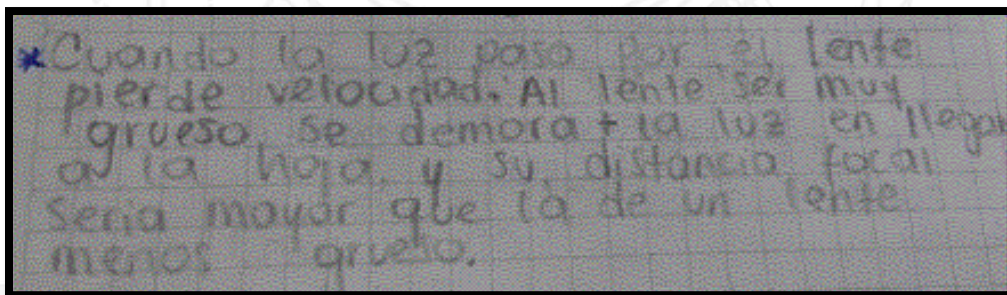 *Cuando la luz paso por el lente
pierde velocidad. Al lente ser muy
grueso se demora + la luz en llegar
a la hoja y su distancia focal
seria mayor que la de un lente
menos grueso.